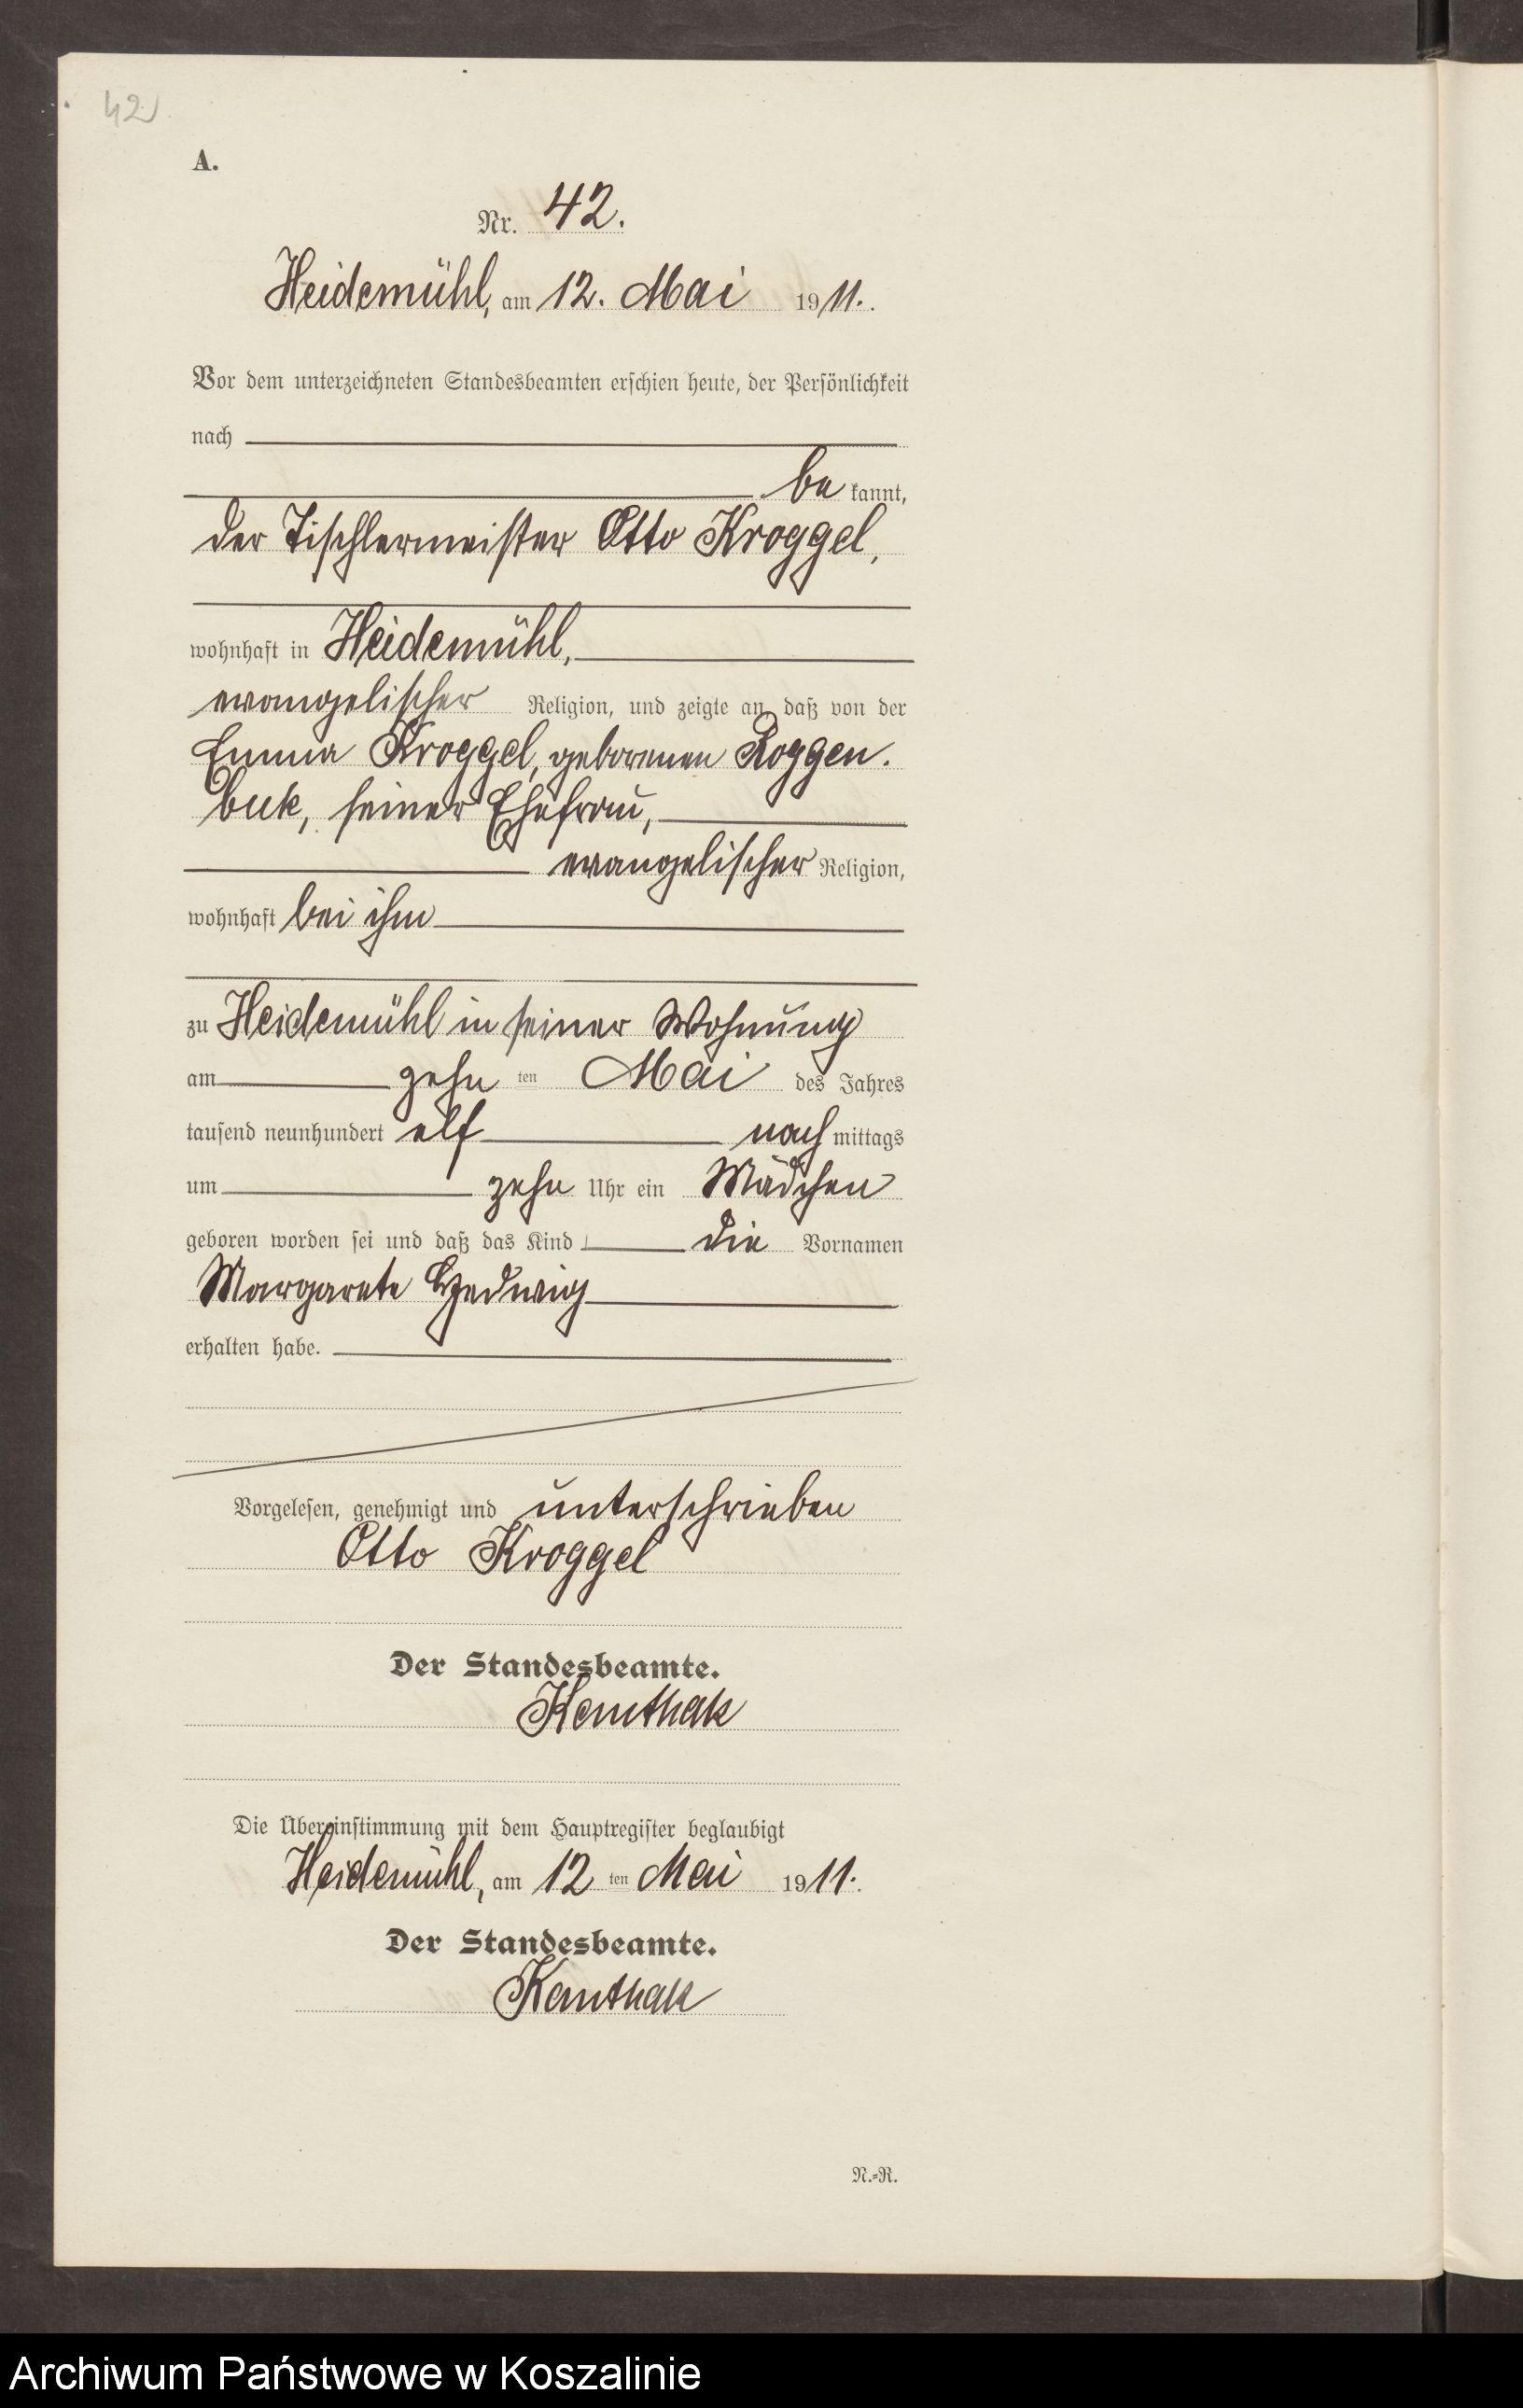 42
A.
Nr. 42.
Heidemühl, am 12. Mai 1911.
Vor dem unterzeichneten Standesbeamten erschien heute, der Persönlichkeit
nach
be kannt,
der Tischlermeister Otto Kroggel,
wohnhaft in Heidemühl,
evangelischer Religion, und zeigte an, daß von der
Emma Kroggel, geborenen Roggen.
buk, seiner Ehefrau,
evangelischer Religion,
wohnhaft bei ihm
zu Heidemühl in seiner Wohnung
am zehn ten Mai des Jahres
tausend neunhundert elf nach mittags
um zehn Uhr ein Mädchen
geboren worden sei und daß das Kind die Vornamen
Margarete Hedwig
erhalten habe.
Vorgelesen, genehmigt und unterschrieben
Otto Kroggel
Der Standesbeamte.
Kemthak
Die Übereinstimmung mit dem Hauptregister beglaubigt
Heidemühl, am 12 ten Mai 1911.
Der Standesbeamte.
Kemthak
N.=R.
Archiwum Państwowe w Koszalinie